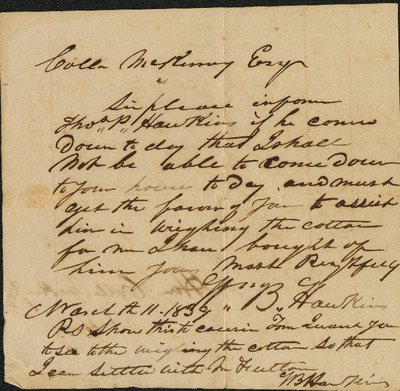 Collin McKinney Esqr
Sir please inform
Thos. P. Hawkins if he comes
Down to day that I shall
Not be able to come down
to your house to day and must
ask the favor of you to assist
him in weighing the cotton
for me I have bought of
him yours Most Respfully
B Hawkins
March 11 1839
PS Show this to cousin Tom I want you
to see to the weighing the cotton so that
I can settle with Mr
B Hawkins